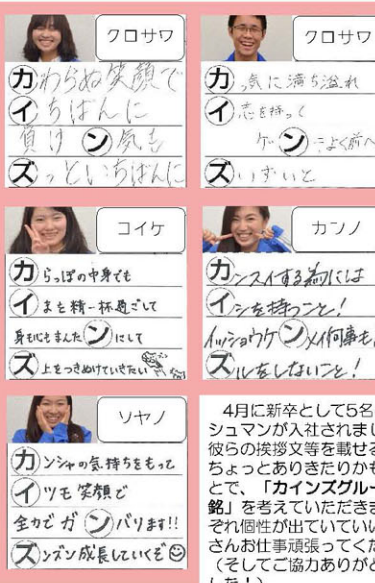 クロサワ
カわらぬ笑顔で
イちばんに
負けン気も
ズっといちばんに
クロサワ
カ
気に満ち溢れ
イ
を持って
ケンきよく前へ
ズいずいと
コイケ
カらっぽの中身でも
イまを精一杯過ごして
身も心もまんたンにして
ズ上をつきぬけていきたい
カンノ
カンスイする為には
イシを持つこと!
イッショウケンメイ何事も
ズルをしないこと!
ソヤノ
カンシャの気持ちをもって
イツモ笑顔で
全力でガンバリます!!
ズンズン成長していくぞ☺
4月に新卒として5名
シュマンが入社されまし
彼らの挨拶文等を載せる
ちょっとありきたりかも
とで、「カインズグルー
銘」を考えていただきま
ぞれ個性が出ていてい
さんお仕事頑張ってくだ
(そしてご協力ありがと
した!)